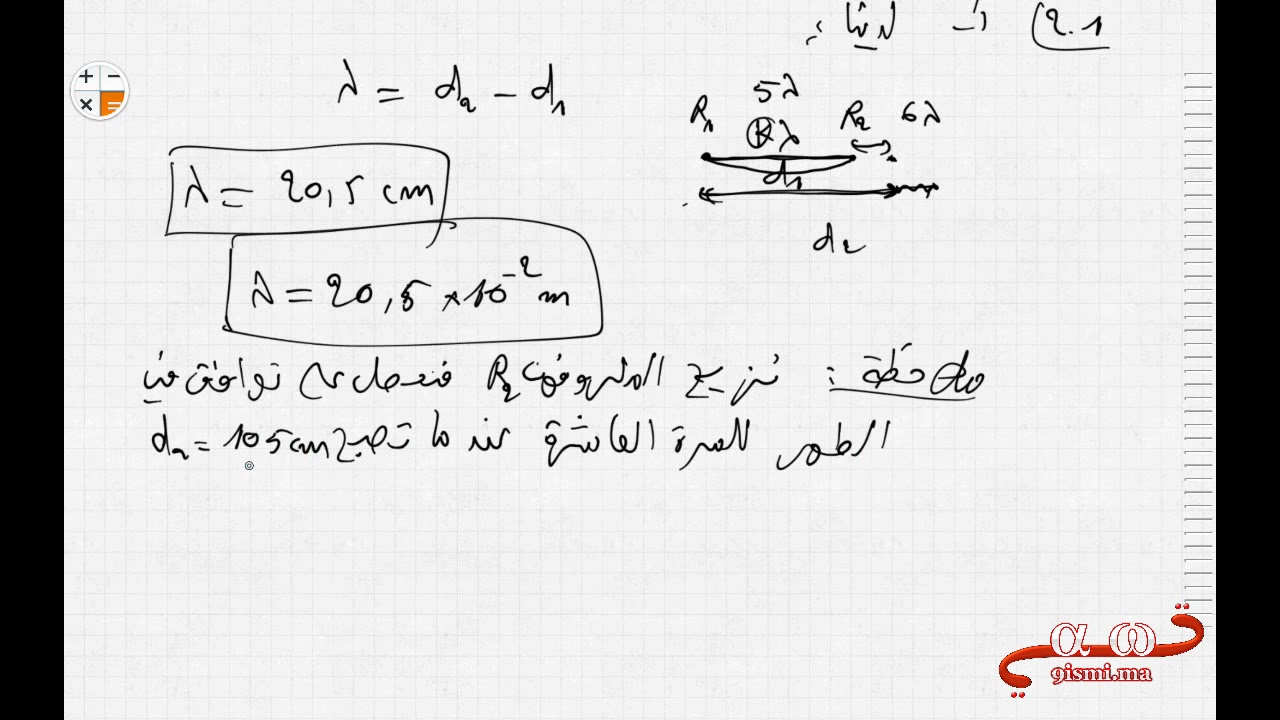 2.1) إثبات :
λ = d₂ - d₁
5λ
R₁ Kλ R₂ 6λ
d₁
d₂
λ = 20,5 cm
λ = 20,5 × 10⁻² m
ملاحظة : نزيح الميكروفون R₂ فنحصل على توافق في
الطور للمرة العاشرة عند ما تصبح d₂ = 105 cm
+ -
× =
α ω
gismi.ma